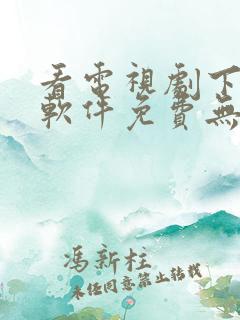 看電視劇下
軟件免費無
馮新柱
未经同意禁止转载